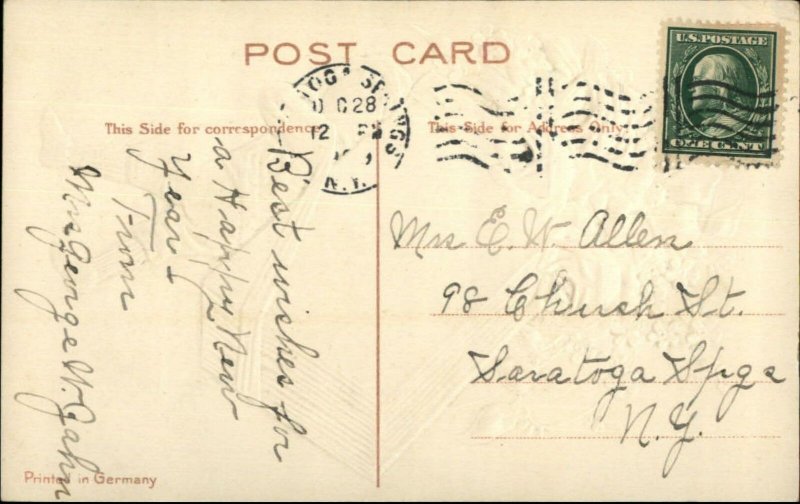 POST CARD
This Side for correspondence
This Side for Address Only.
U.S. POSTAGE
ONE CENT
SPRINGS
28
N.Y.
Best wishes for
a Happy New
Year -
From
Mrs George W. Jahn
Mrs E. W. Allen
98 Church St.
Saratoga Spgs
N.Y.
Printed in Germany